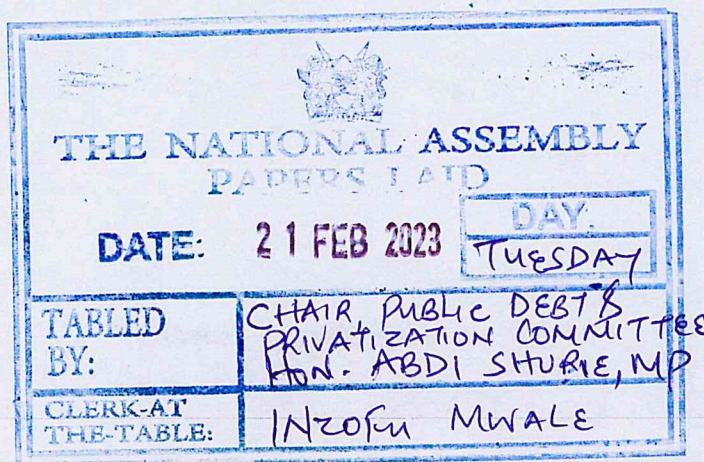 THE NATIONAL ASSEMBLY
PAPERS LAID
DATE: 21 FEB 2023
DAY:
TUESDAY
TABLED BY:
CHAIR, PUBLIC DEBT &
PRIVATIZATION COMMITTEE
HON. ABDI SHURIE, MP
CLERK-AT THE-TABLE:
INZOFU MWALE